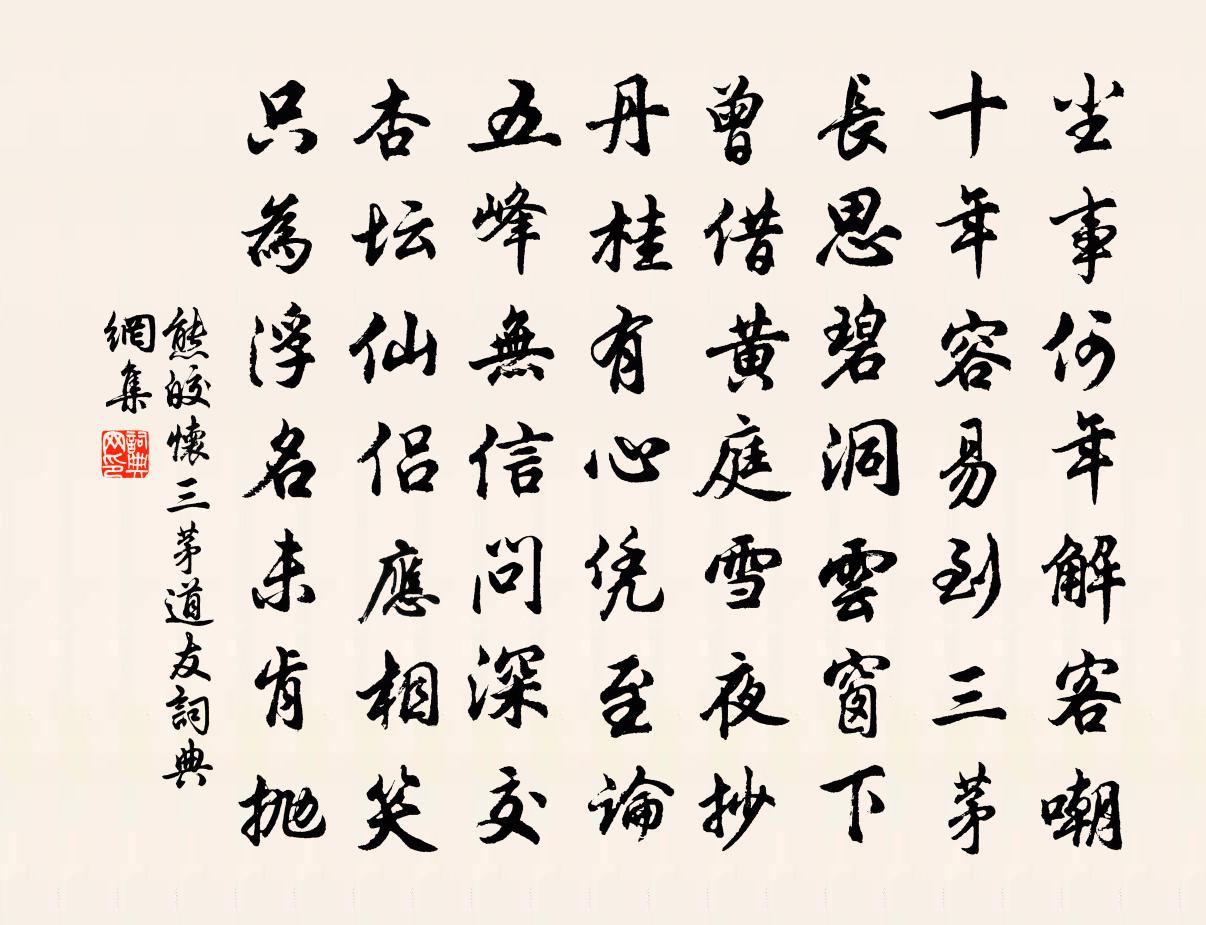 尘事何年解客嘲
十年容易到三茅
長思碧洞雲窗下
曾借黄庭雪夜抄
丹桂有心凭至論
五峰無信問深交
杏坛仙侣應相笑
只為浮名未肯抛
熊皎懷三茅道友詞典
網集
詞典网印